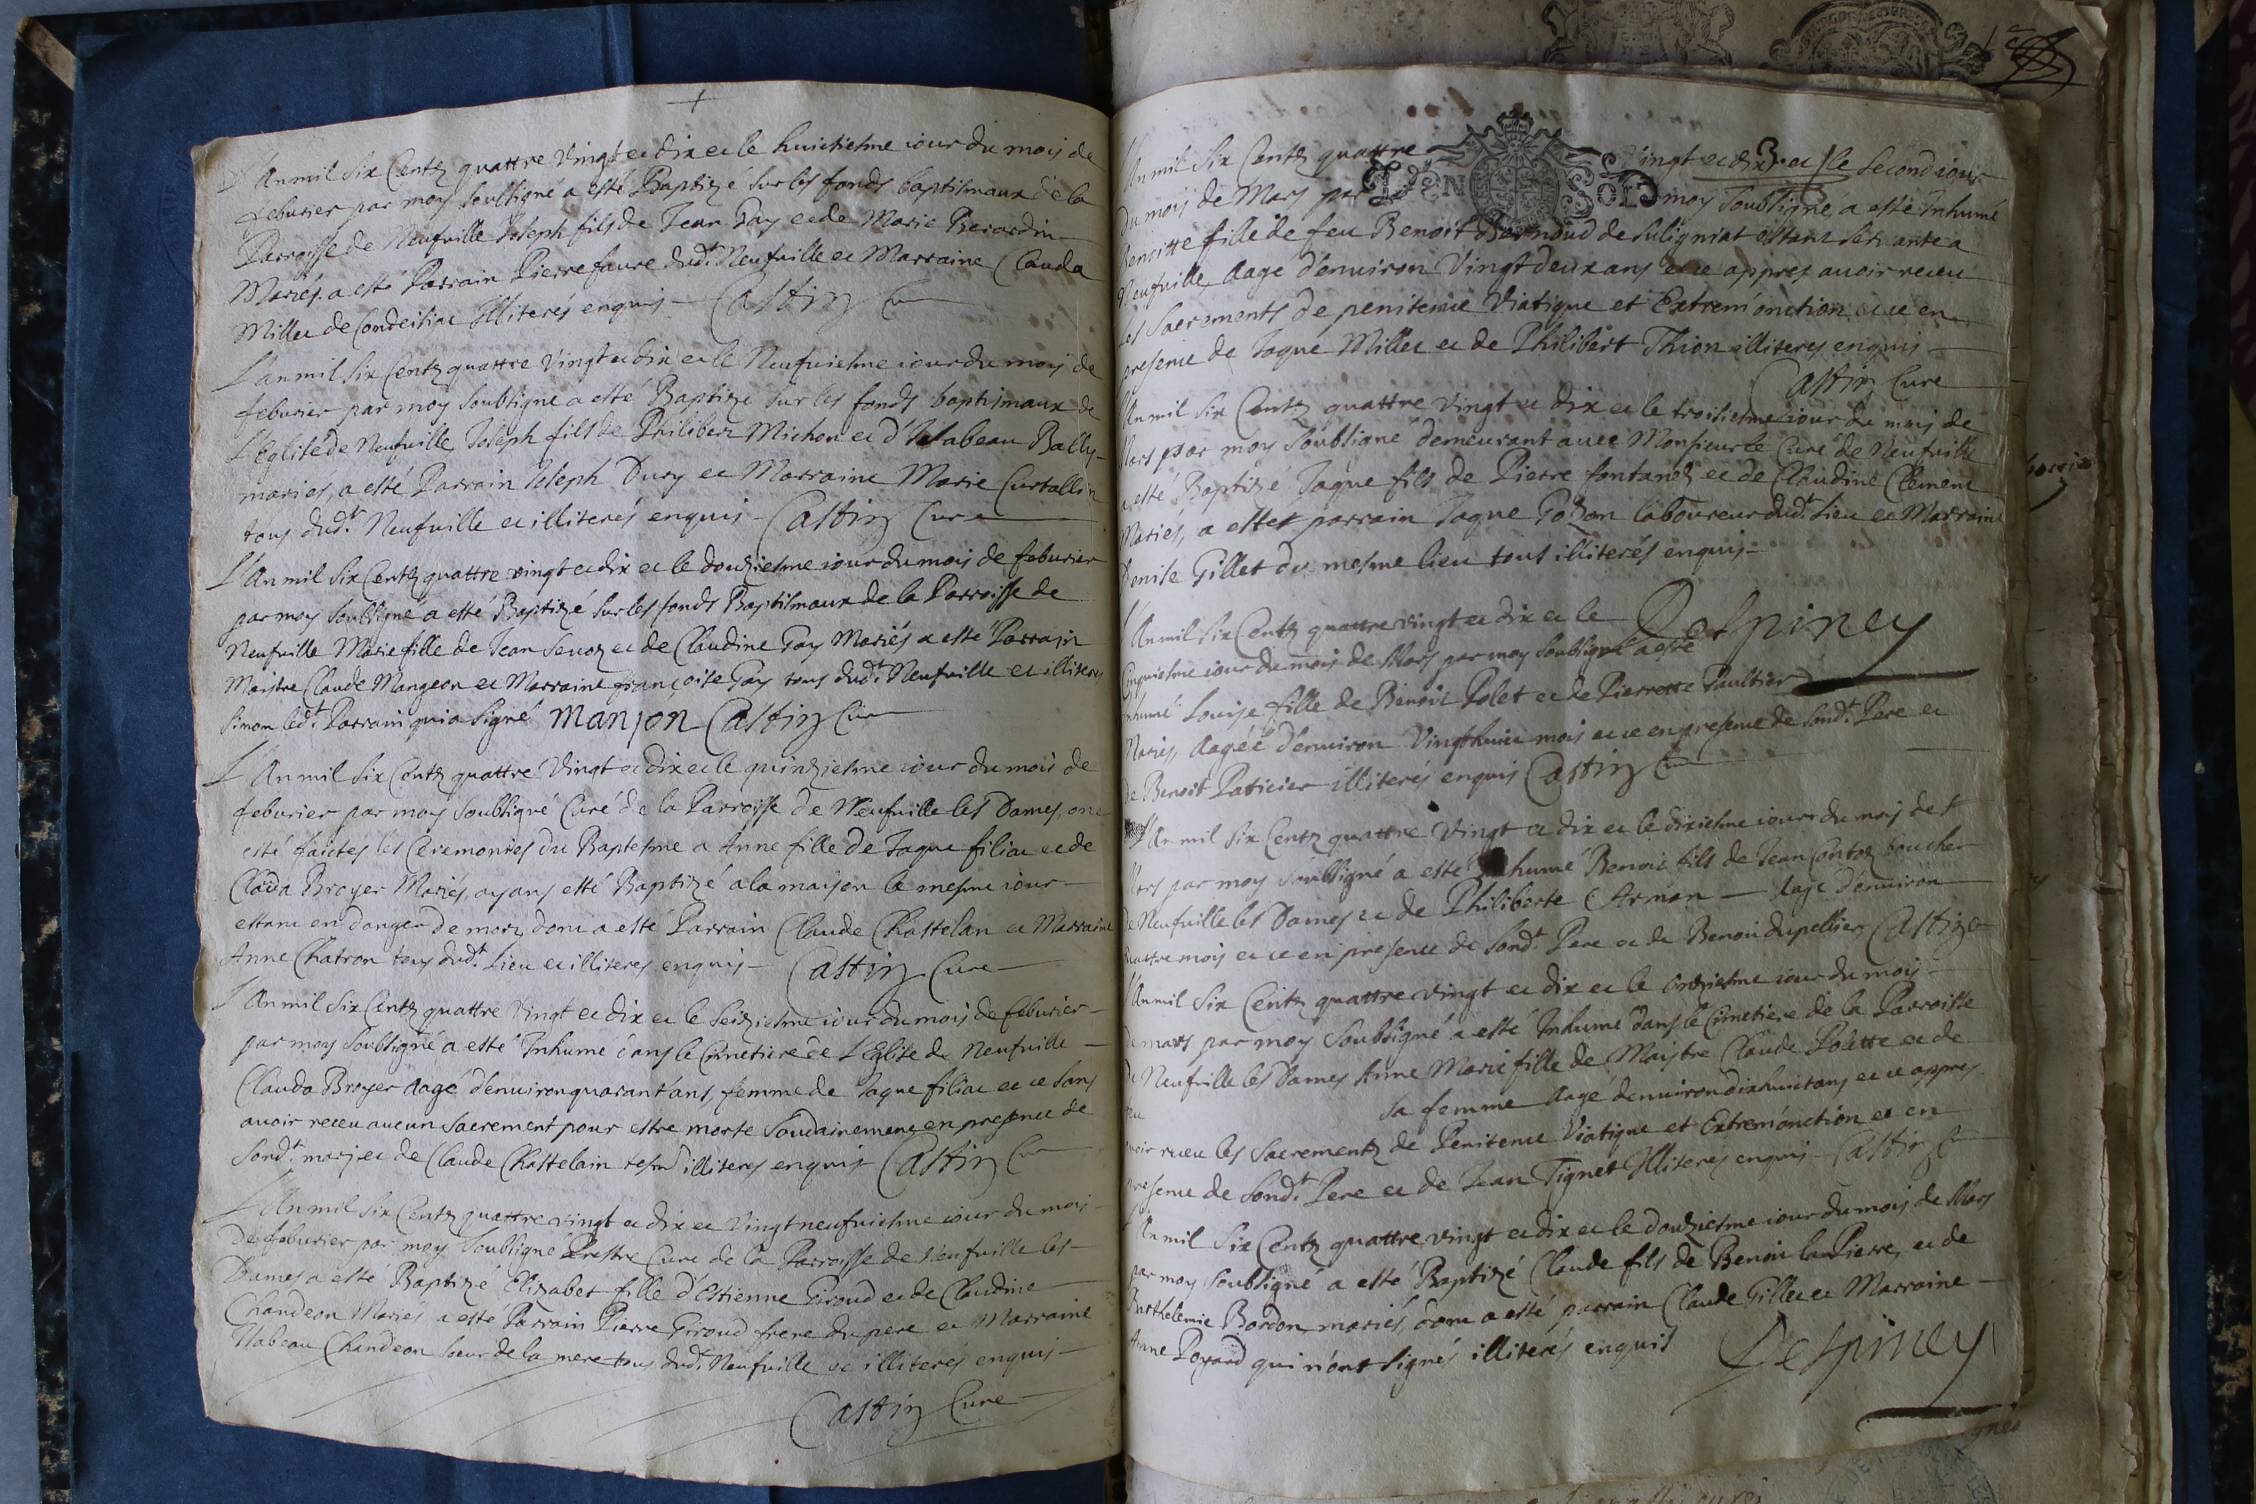 L'An mil six Centz quattre Vingt et dix et le huictiesme iour du mois de
feburier par moy soubsigné a esté Baptizé sur les fonds baptismaux de la
Parroisse de Neufville Joseph fils de Jean Gay et de Marie Berardin
Mariés. a esté Parrain Pierre faure dudt. Neufville et Marraine Clauda
Millet de Condeisiat Illiterés enquis - Castin Cu
L'an mil six Centz quattre Vingt et dix et le Neufuiesme iour du mois de
feburier par moy soubsigné a esté Baptizé sur les fonds baptismaux de
L'Eglise de Neufville Joseph fils de Philibert Michon et d'Isabeau Bally
mariés, a esté Parrain Joseph Dury et Marraine Marie Curtallin
tous dudt. Neufville et illiterés enquis - Castin Cure
L'An mil six Centz quattre vingt et dix et le douziesme iour du mois de feburier
par moy soubsigné a esté Baptizé sur les fonds Baptismaux de la Parroisse de
Neufville Marie fille de Jean Sevoz et de Claudine Gay Mariés a esté Parrain
Maistre Claude Mangeon et Marraine françoise Gay tous dudt. Neufville et illiteres
sinon ledt. Parrain qui a signé manjon Castin Cu
L'An mil six Centz quattre Vingt et dix et le quinziesme iour du mois de
feburier par moy soubsigné Curé de la Parroisse de Neufville les Dames, ont
esté faictes les Ceremonies du Baptesme a Anne fille de Jaque filiat et de
Clauda Broyer Mariés, ayans esté Baptizé a la maison le mesme iour
estant en danger de mort, dont a esté Parrain Claude Chastelan et Marraine
Anne Chatron tous dudt. Lieu et illiteres enquis - Castin Cure
L'An mil six Centz quattre Vingt et dix et le seiziesme iour du mois de feburier
par moy soubsigné a esté Inhumé dans le Cimetiere de L'Eglise de Neufville
Clauda Broyer Aagé d'enuiron quarant'ans, femme de Jaque filiat et ce sans
auoir receu aucun sacrement pour estre morte soudainement en presence de
sondt. mary et de Claude Chastelain tesm illiteres enquis Castin Cu
L'An mil six Centz quattre vingt et dix et Vingt neufuiesme iour du mois
De feburier par moy soubsigné Prestre Curé de la Parroisse de Neufville les
Dames a esté Baptizé Elizabet fille d'Estienne Giroud et de Claudine
Chandeon Mariés a esté Parrain Pierre Giroud frere du pere et Marraine
Isabeau Chandeon soeur de la mere tous dudt. Neufville et illiterés enquis
Castin Cure
L'An mil six Centz quattre Vingt et dix et le second iour
Du mois de Mars par DEN SOLS moy soubsigné a esté Inhumé
Benoitte fille de feu Benoit de Suligniat estant seruante a
Neufville Aage d'enuiron Vingt deux ans et ce appres auoir receu
Les Sacrements de penitence Viatique et Extrem'onction et ce en
presence de Jaque Millet et de Philibert Thion illiteres enquis
Castin Cure
L'An mil six Centz quattre Vingt et dix et le troisiesme iour du mois de
Mars par moy soubsigné demeurant auec Monsieur le Curé de Neufville
a esté Baptizé Jaque fils de Pierre fontanet et de Claudine Clement
Mariés, a estet parrain Jaque Gozon laboureur dudt. Lieu et Marraine
Denise Gillet du mesme lieu tous illiterés enquis
Despiney
L'An mil six Centz quattre vingt et dix et le
Cinquiesme iour du mois de Mars par moy soubsigné a esté
Inhumé Louise fille de Benoit Polet et de Pierrette Paultier
Mariés, Aagée d'enuiron Vingthuict mois et ce en presence de sondt. Pere et
de Benoit Paticier illiterés enquis Castin Cu
L'An mil six Centz quattre Vingt et dix et le dixiesme iour du mois de
Mars par moy soubsigné a esté Inhumé Benoit fils de Jean Contoz boucher
de Neufville les Dames et de Philiberte Arman - Aage d'enuiron
quattre mois et ce en presence de sondt. Pere et de Benoit dupellier Castin
L'An mil six Centz quattre vingt et dix et le onziesme iour du mois
De mars par moy soubsigné a esté Inhumé dans le Cimetiere de la Parroisse
de Neufville les Dames Anne Marie fille de Maistre Claude Polette et de
feu sa femme Aagé d'enuiron dixhuict ans et ce appres
auoir receu les sacrementz de Penitence Viatique et Extrem'onction et en
presence de sondt. Pere et de Jean Tignet Illiteres enquis - Castin Cu
L'An mil six Centz quattre vingt et dix et le douziesme iour du mois de Mars
par moy soubsigné a esté Baptizé Claude fils de Benoit la Pierre, et de
Barthelemie Bordon mariés, dont a esté parrain Claude Gillet et Marraine
Anne Poyard qui n'ont signés illiterés enquis
Despiney